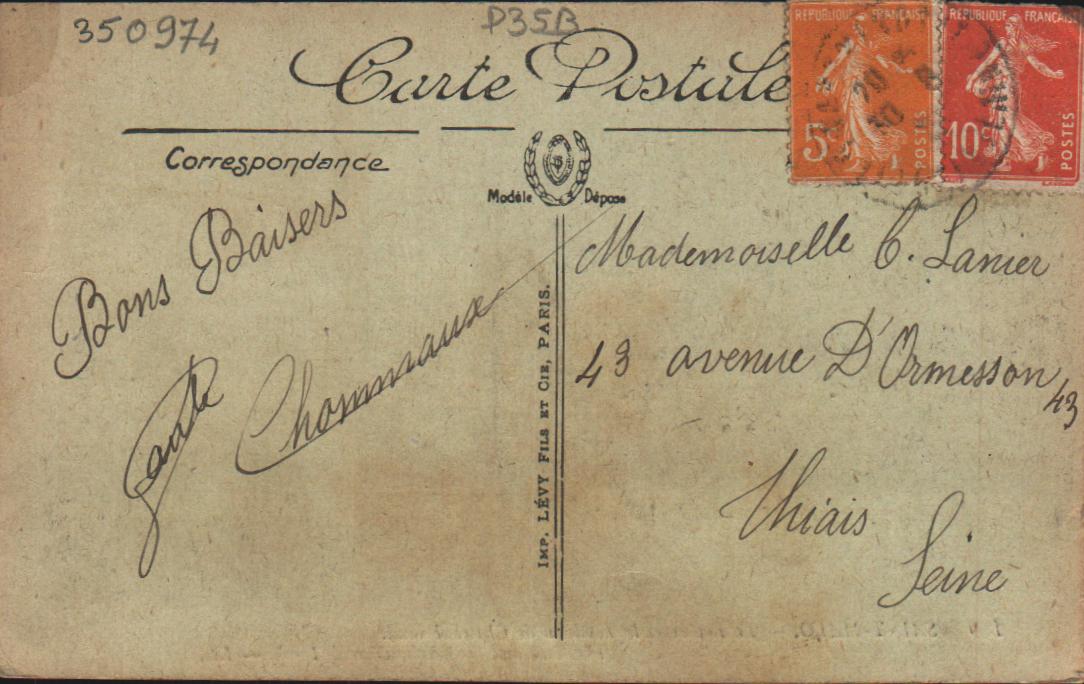 350974
P35B
Carte Postale
RÉPUBLIQUE FRANÇAISE
5c
POSTES
RÉPUBLIQUE FRANÇAISE
10c
POSTES
Correspondance
Modèle Déposé
Bons Baisers
Chommaux
IMP. LÉVY FILS ET CIE, PARIS.
Mademoiselle C. Lanier
43 avenue D'Ormesson
43
Thiais
Seine